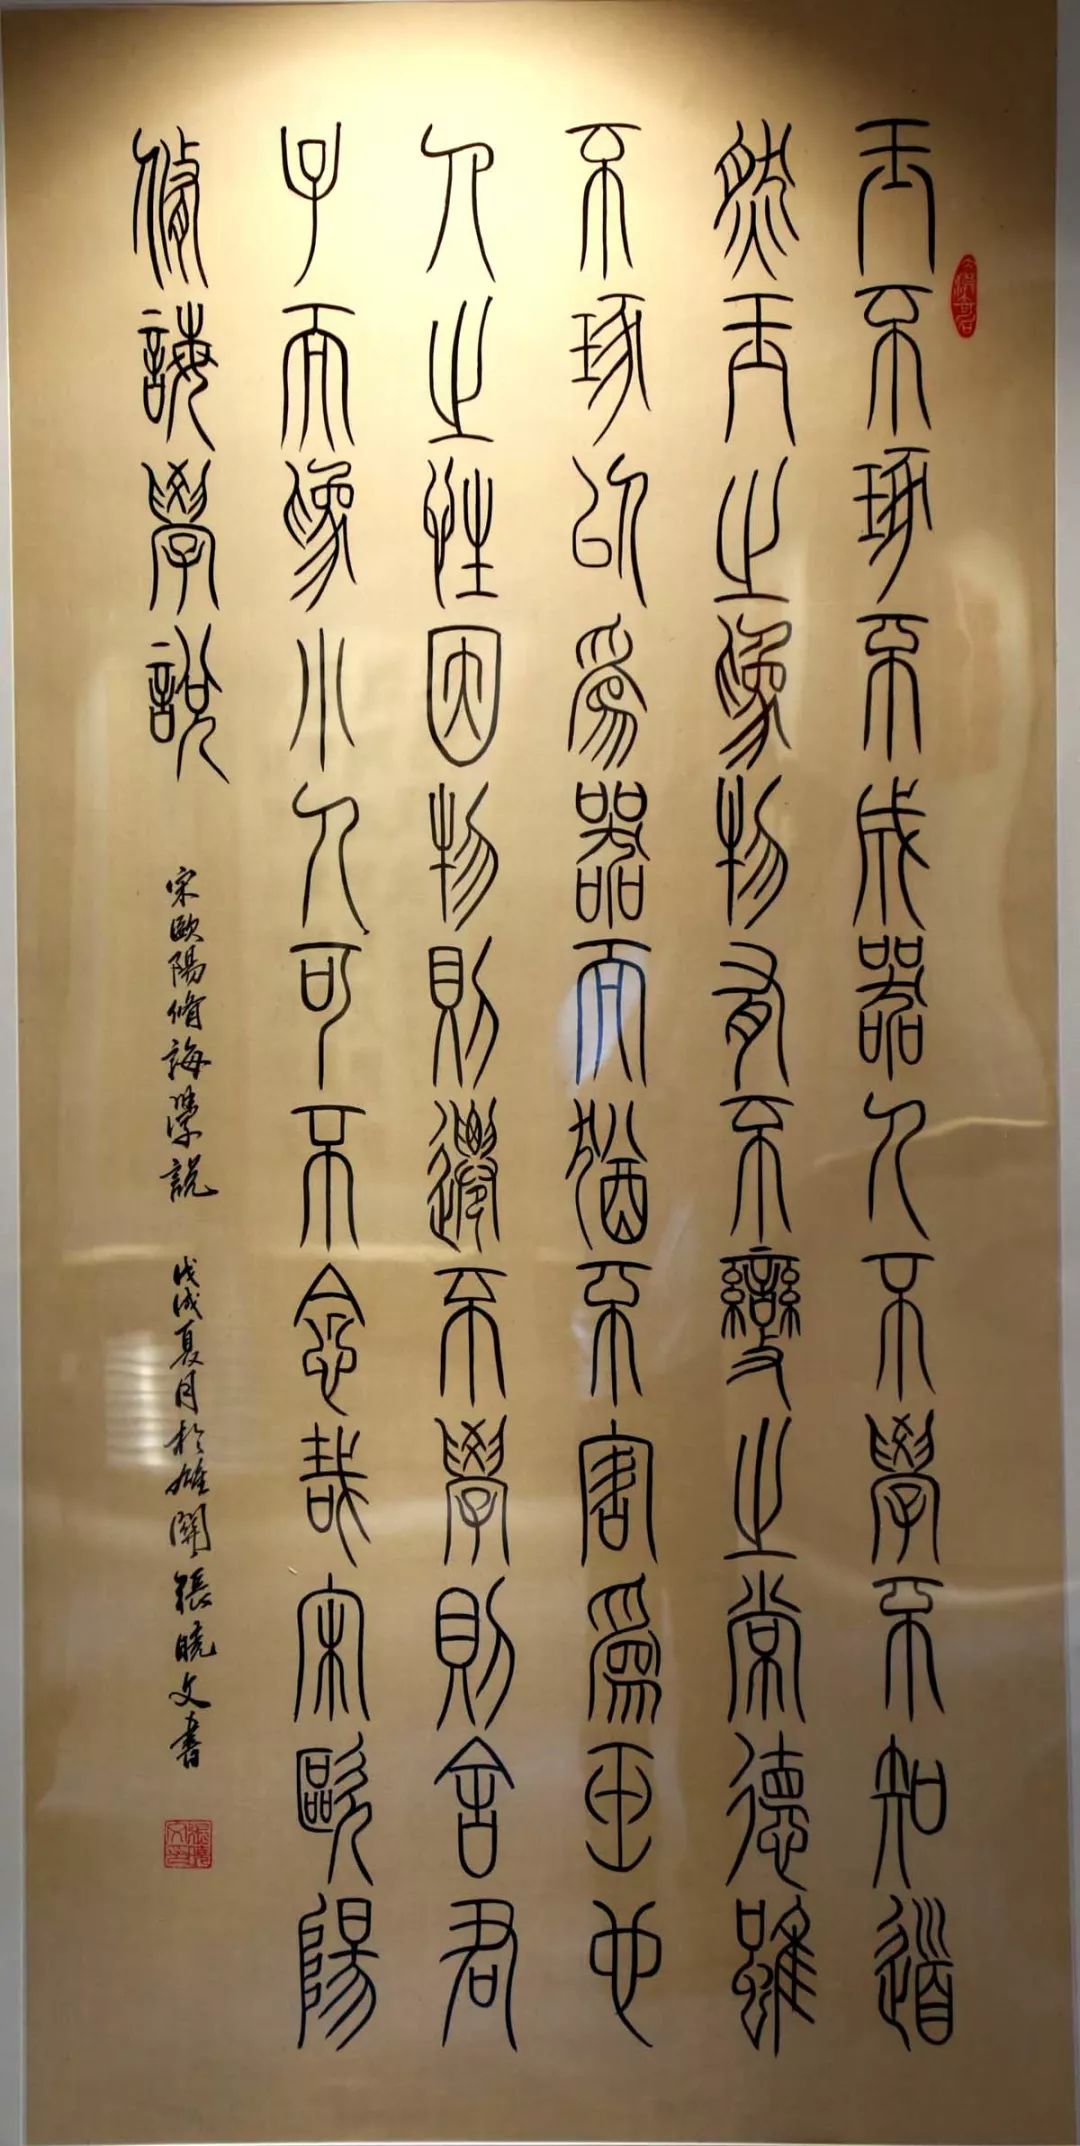 玉不琢不成器人不學不知道
然玉之為物有不變之常德雖
不琢以為器而猶不害為玉也
人之性因物則遷不學則舍君
子而為小人可不念哉宋歐陽
脩誨學說
宋歐陽脩誨學說 戊戌夏月於雄關張曉文書